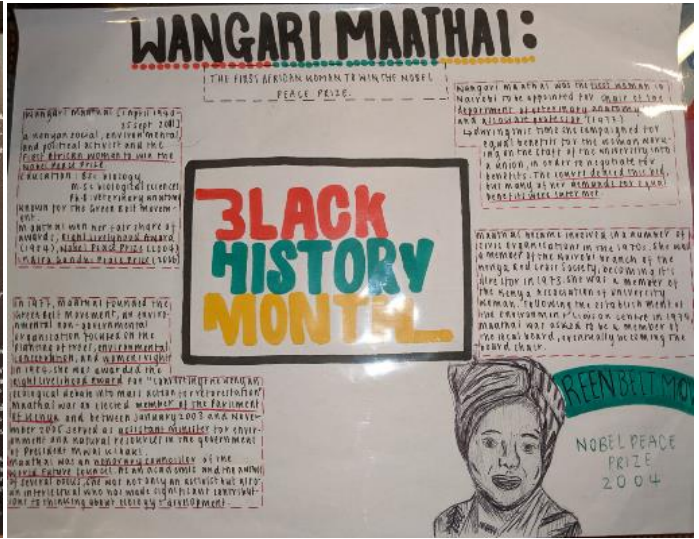 WANGARI MAATHAI:
THE FIRST AFRICAN WOMAN TO WIN THE NOBEL
PEACE PRIZE.
Wangari Maathai (1 April 1940 -
25 Sept 2011)
a Kenyan social, environmental,
and political activist and the
first African women to win the
Nobel Peace Prize.
Education: BSc biology,
M.Sc biological sciences
Ph.D. veterinary anatomy
known for the Green Belt Movem-
ent.
Maathai won her fair share of
awards, Right Livelyhood Award
(1984), Nobel Peace Prize (2004)
Indira Gandhi Peace Prize (2006)
In 1977, Maathai founded the
Green Belt Movement, an enviro-
nmental non-governmental
organisation focused on the
planting of trees, environmental
conservation, and women's rights
in 1984, she was awarded the
Right Livelihood Award for "converting the Kenyan
ecological debate into mass action for reforestation"
Maathai was an elected member of the Parliament
of Kenya and between January 2003 and Nove-
mber 2005 served as assistant minister for envir-
onment and natural resources in the government
of President Mwai Kibaki.
Maathai was an honorary councillor of the
World Future Council. As an academic and the author
of several books, she was not only an activist but also
an intellectual who has made significant contribut-
ions to thinking about ecology + development.
BLACK
HISTORY
MONTH
Wangari Maathai was the first woman in
Nairobi to be appointed for chair of the
department of veterinary anatomy
and associate professor (1977)
during this time she campaigned for
equal benefits for the woman work-
ing on the staff of the university into
a union, in order to negotiate for
benefits. The court denied this bid,
but many of her demands for equal
benefits were later met
Maathai became involved in a number of
civic organisations in the 1970s. She was
a member of the Nairobi branch of the
Kenya Red Cross Society, becoming it's
director in 1973. She was a member of
the Kenya Association of University
Woman. Following the establishment of
the Environment Liaison Centre in 1974
Maathai was asked to be a member of
the local board, eventually becoming the
board chair.
REEN BELT MOV
NOBEL PEACE
PRIZE
2004